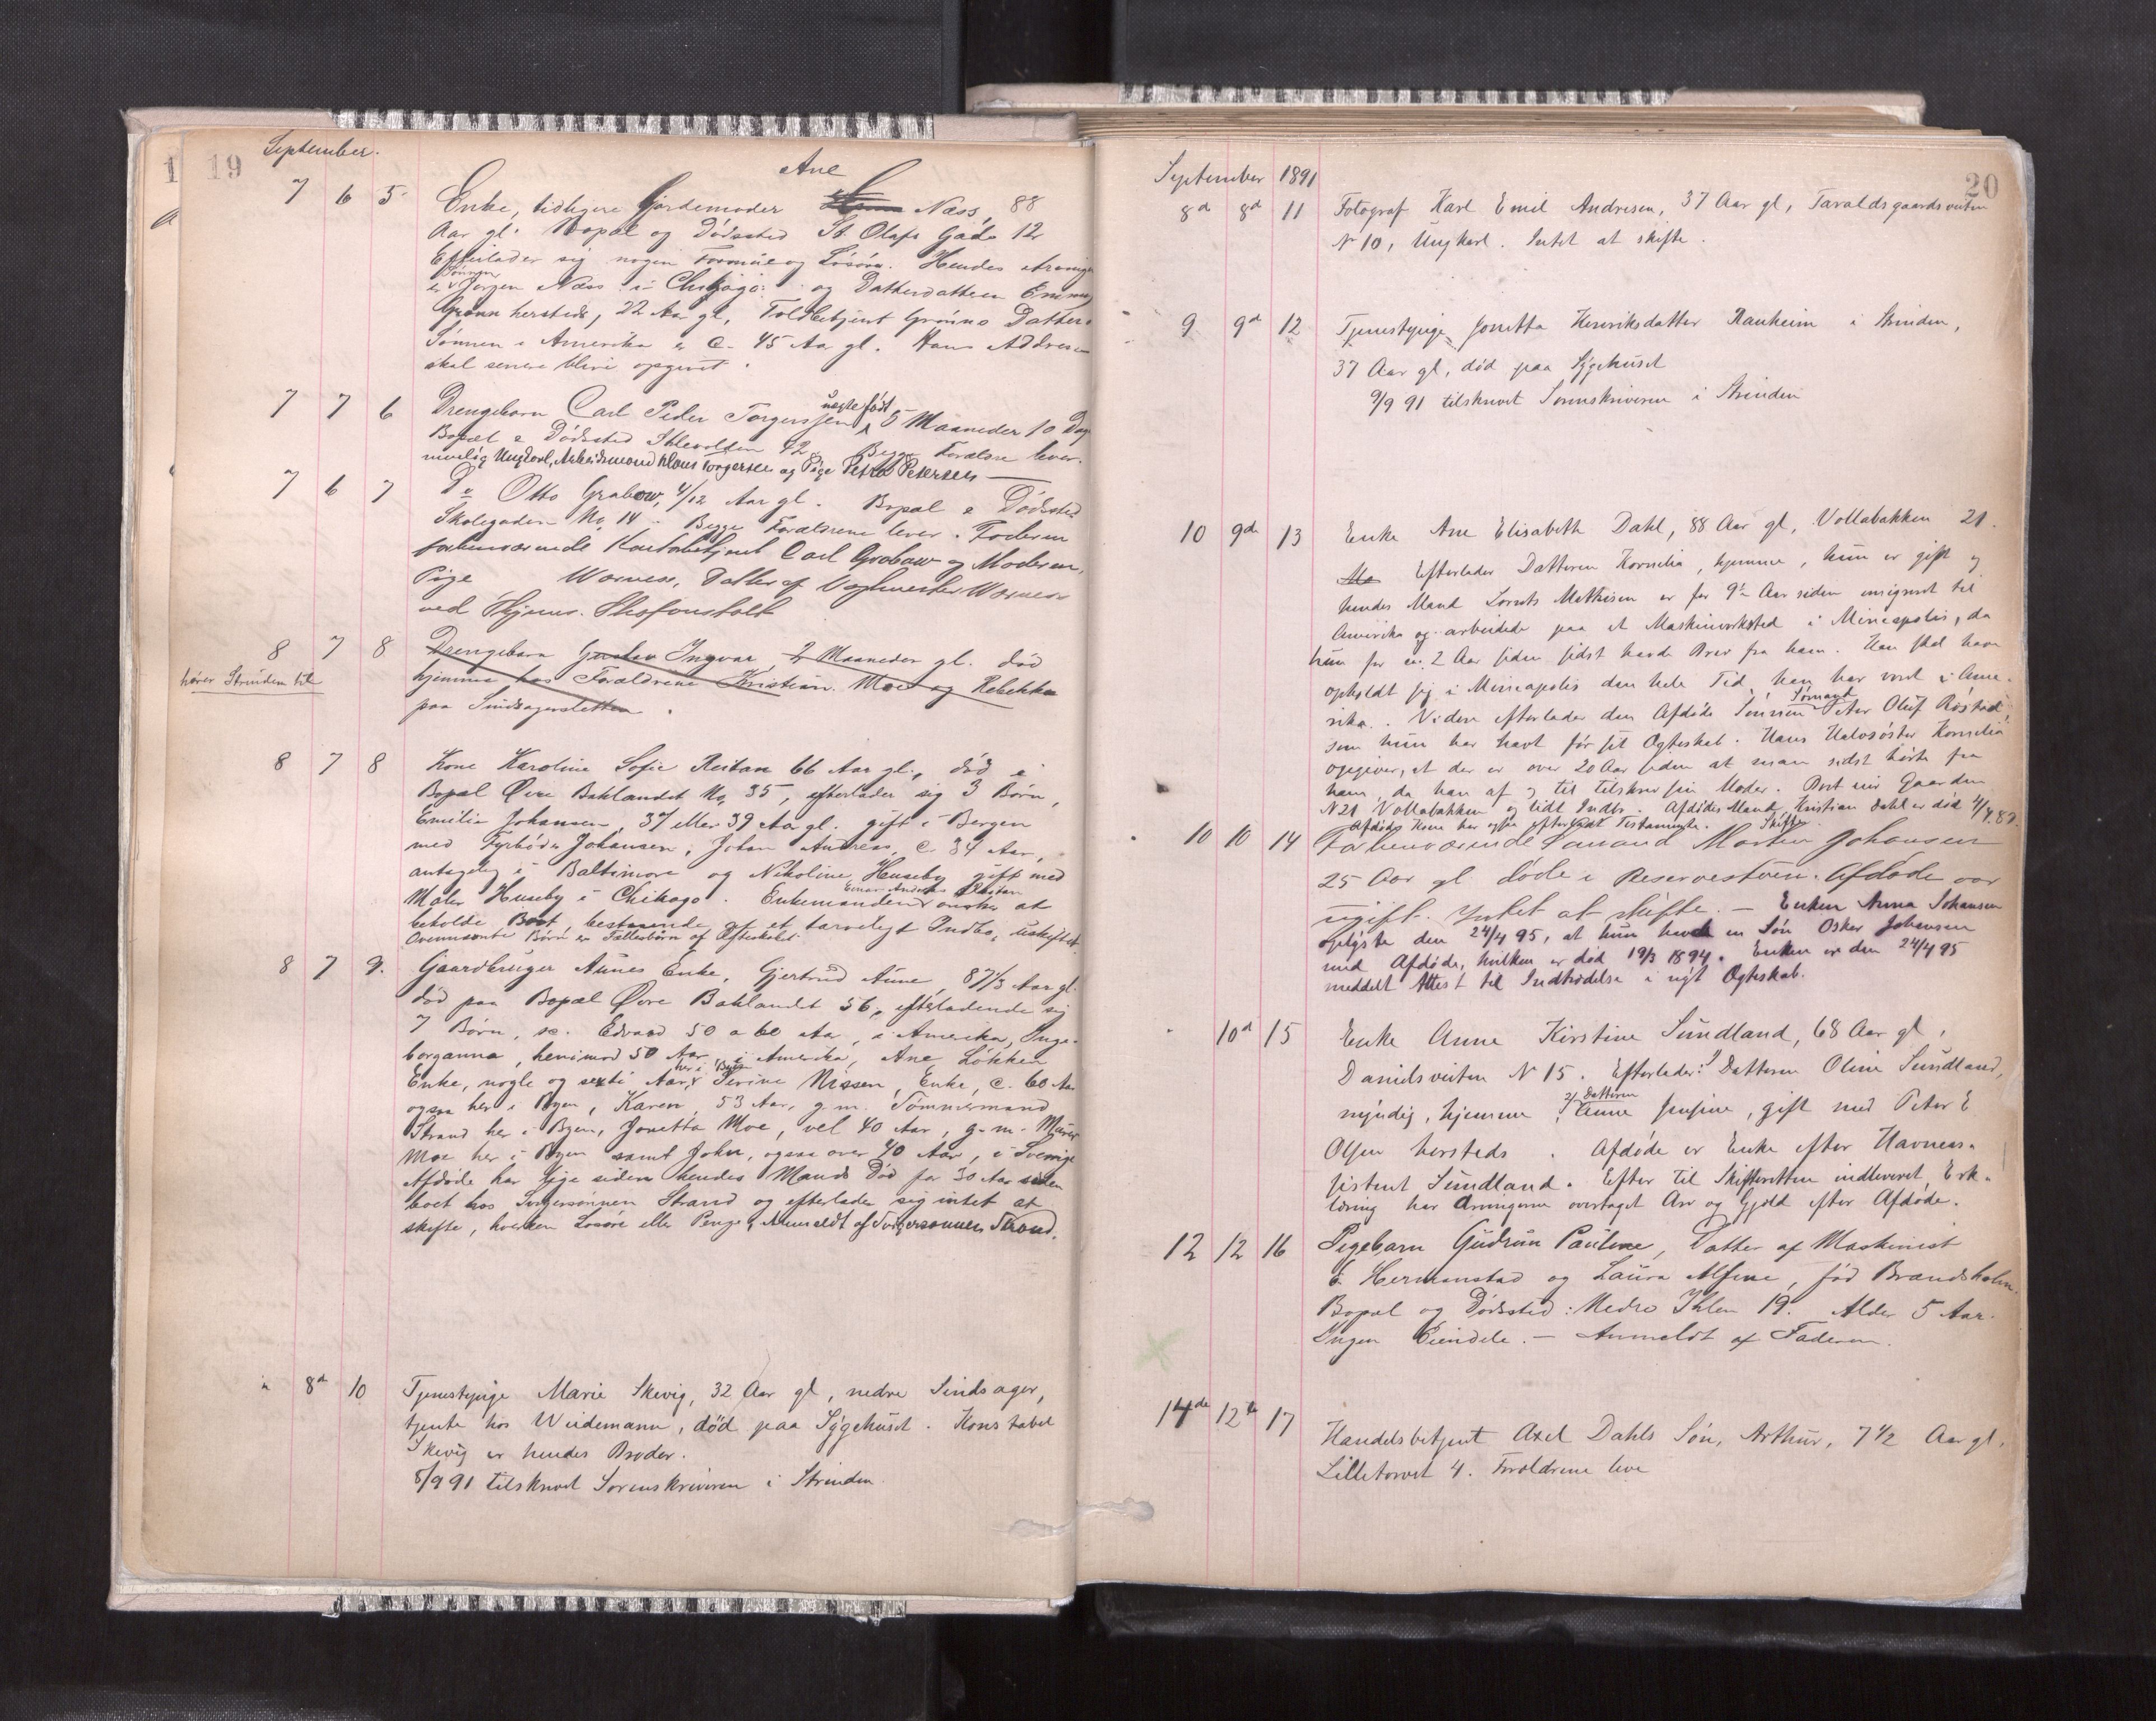 19
September.
Ane
7 6 5 Enke, tidligere Gjordemoder Næss, 88
Aar gl. Bopæl og Dødssted St. Olafs Gade 12
Efterlader sig nogen Formue og Løsøre. Hendes Arvinge
er Sønnen Jørgen Næss i Chikago og Datterdatteren Emma
Grønn hersteds, 22 Aar gl, Toldbetjent Grønns Datter.
Sønnen i Amerika er c. 45 Aar gl. Hans Addresse
skal senere blive opgivet.
7 7 6 Drengebarn Carl Peder Torgerssen uægte født 5 Maaneder 10 Dage
Bopæl & Dødssted Ihlevolden 42. Begge Forældre lever.
nemlig Ungkarl, Arbeidsmand Klaus Torgersen og Pige Petra Petersen
7 6 7 Do Otto Grabow, 4/12 Aar gl. Bopæl & Dødssted
Skolegaden No. 14. Begge Forældrene lever. Faderen
forhenværende Kontorbetjent Carl Grabow og Moderen,
Pige Wærness, Datter af Vagtmester Wærness
ved Thjems. Strafanstalt
8 7 8 Drengebarn Gustav Ingvar, 2 Maaneder gl. død
hører Strinden til
hjemme hos Forældrene Kristian Moe og Rebekka
paa Sindsagersletten.
8 7 8 Kone Karoline Sofie Reitan 66 Aar gl., død i
Bopæl Øvre Baklandet No. 35, efterlader sig 3 Børn,
Emilie Johansen, 37 eller 39 Aar gl. gift i Bergen
med Fyrbøder Johansen, Johan Andreas, c. 34 Aar,
antagelig i Baltimore og Nikoline Huseby gift med
Maler Huseby i Chikago. Enkemanden Einar Andreas ønsker at
beholde Boet, bestaaende af et tarveligt Indbo, uskiftet.
Ovennævnte Børn er Fællesbørn af Ægteskabet.
8 7 9. Gaardbruger Aunes Enke, Gjertrud Aune, 87 1/3 Aar gl.
død paa Bopæl Øvre Baklandet 56, efterladende sig
7 Børn, sc. Edvard 50 a 60 Aar, i Amerika, Inge-
borganna, henimod 50 Aar, i Amerika, Ane Løkken
Enke, nogle og sexti Aar, her i Byen Serine Nissen, Enke, c. 60 Aar
ogsaa her i Byen, Karen, 53 Aar, g. m. Tømmermand
Strand her i Byen, Jonetta Moe, vel 40 Aar, g. m. Murer
Moe her i Byen samt John, ogsaa over 40 Aar, i Sverige
Afdøde har lige siden hendes Mands Død for 30 Aar siden
boet hos Svigersønnen Strand og efterlader sig intet at
skifte, hverken Løsøre eller Penge. Anmeldt af Svigersønnen Strand.
8d 10 Tjenestepige Marie Skevig, 32 Aar gl, nedre Sindsager,
tjente hos Wiedemann, død paa Sygehuset. Konstabel
Skevig er hendes Broder.
8/9 91 tilskrevet Sorenskriveren i Strinden
20
September 1891
8d 8d 11 Fotograf Karl Emil Andresen, 37 Aar gl, Taraldsgaardsveiten
No 10, Ungkarl. Intet at skifte.
9 9d 12 Tjenestepige Jonetta Henriksdatter Ranheim i Strinden,
37 Aar gl, død paa Sygehuset
9/9 91 tilskrevet Sorenskriveren i Strinden
10 9d 13 Enke Ane Elisabeth Dahl, 88 Aar gl, Vollabakken 21.
Efterlader Datteren Kornelia, hjemme, hun er gift og
hendes Mand Lornts Mathisen er for 9½ Aar siden emigreret til
Amerika og arbeidede paa et Maskinverksted i Mineapolis, da
hun for ca. 2 Aar siden sidst havde Brev fra ham. Han skal have
opholdt sig i Mineapolis den hele Tid, han har været i Ame-
rika. Viden efterlader den Afdøde Sønnen Sømand Peter Oluf Røstad,
som hun har havt før sit Ægteskab. Hans Halvsøster Kornelia
opgiver, at der er over 20 Aar siden at man sidst hørte fra
ham, da han af og til tilskrev sin Moder. Boet eier Gaarden
N 21 Vollabakken og lidt Indbo. Afdødes Mand, Kristian Dahl er død 4/4 82.
Afdøds Kone har ogsaa efterladt Testamente. Skiftes.
10 10 14 Forhenværende Sømand Morten Johansen
25 Aar gl døde i Reservestuen. Afdøde var
ugift. Intet at skifte. — Enken Anna Johansen
oplyste den 24/4 95, at hun havde en Søn Oskar Johansen
med Afdøde, hvilken er død 19/3 1894. Enken er den 24/4 95
meddelt Attest til Indtrædelse i nyt Ægteskab.
10d 15 Enke Anne Kirstine Sundland, 68 Aar gl,
Danielsveiten N 15. Efterlader: 1 Datteren Oline Sundland,
myndig, hjemme, 2) Datteren Anne Josefine, gift med Peter E
Olsen hersteds. Afdøde er Enke efter Havneas-
sistent Sundland. Efter til Skifteretten indleveret Erk-
læring har Arvingerne overtaget Arv og Gjæld efter Afdøde.
12 12 16 Pigebarn Gudrun Pauline, Datter af Maskinist
E. Hermanstad og Laura Alfine, fød Brandsholm.
Bopæl og Dødssted: Nedre Ihlen 19. Alder 5 Aar.
Ingen Eiendele. — Anmeldt af Faderen.
14de 12te 17 Handelsbetjent Axel Dahls Søn, Arthur, 7 1/2 Aar gl.
Lilletorvet 4. Forældrene leve